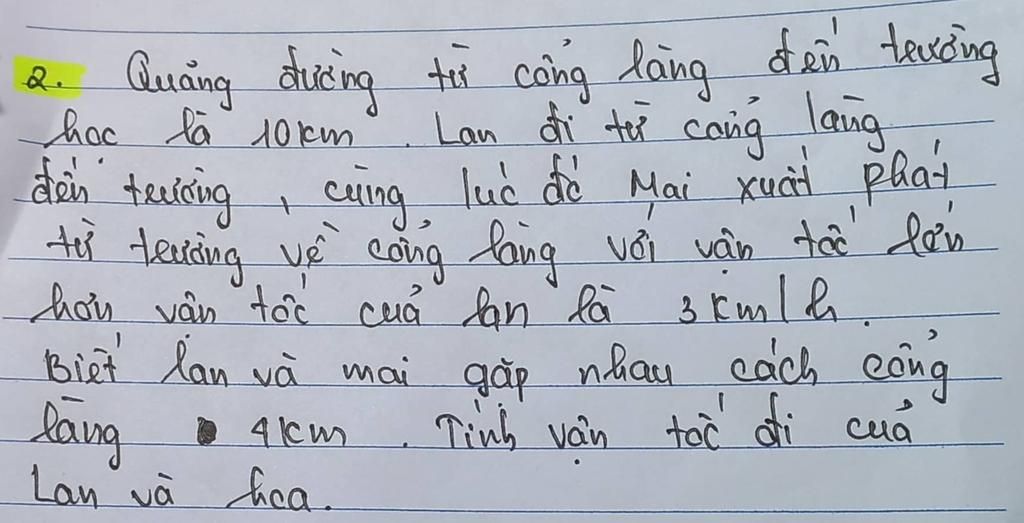 2. Quảng đường từ cổng làng đến trường
học là 10km. Lan đi từ cổng làng
đến trường, cùng lúc đó Mai xuất phát
từ trường về cổng làng với vận tốc lớn
hơn vận tốc cuả lan là 3km/h.
Biết lan và mai gặp nhau cách cổng
làng 4km. Tính vận tốc đi cuả
Lan và hoa.